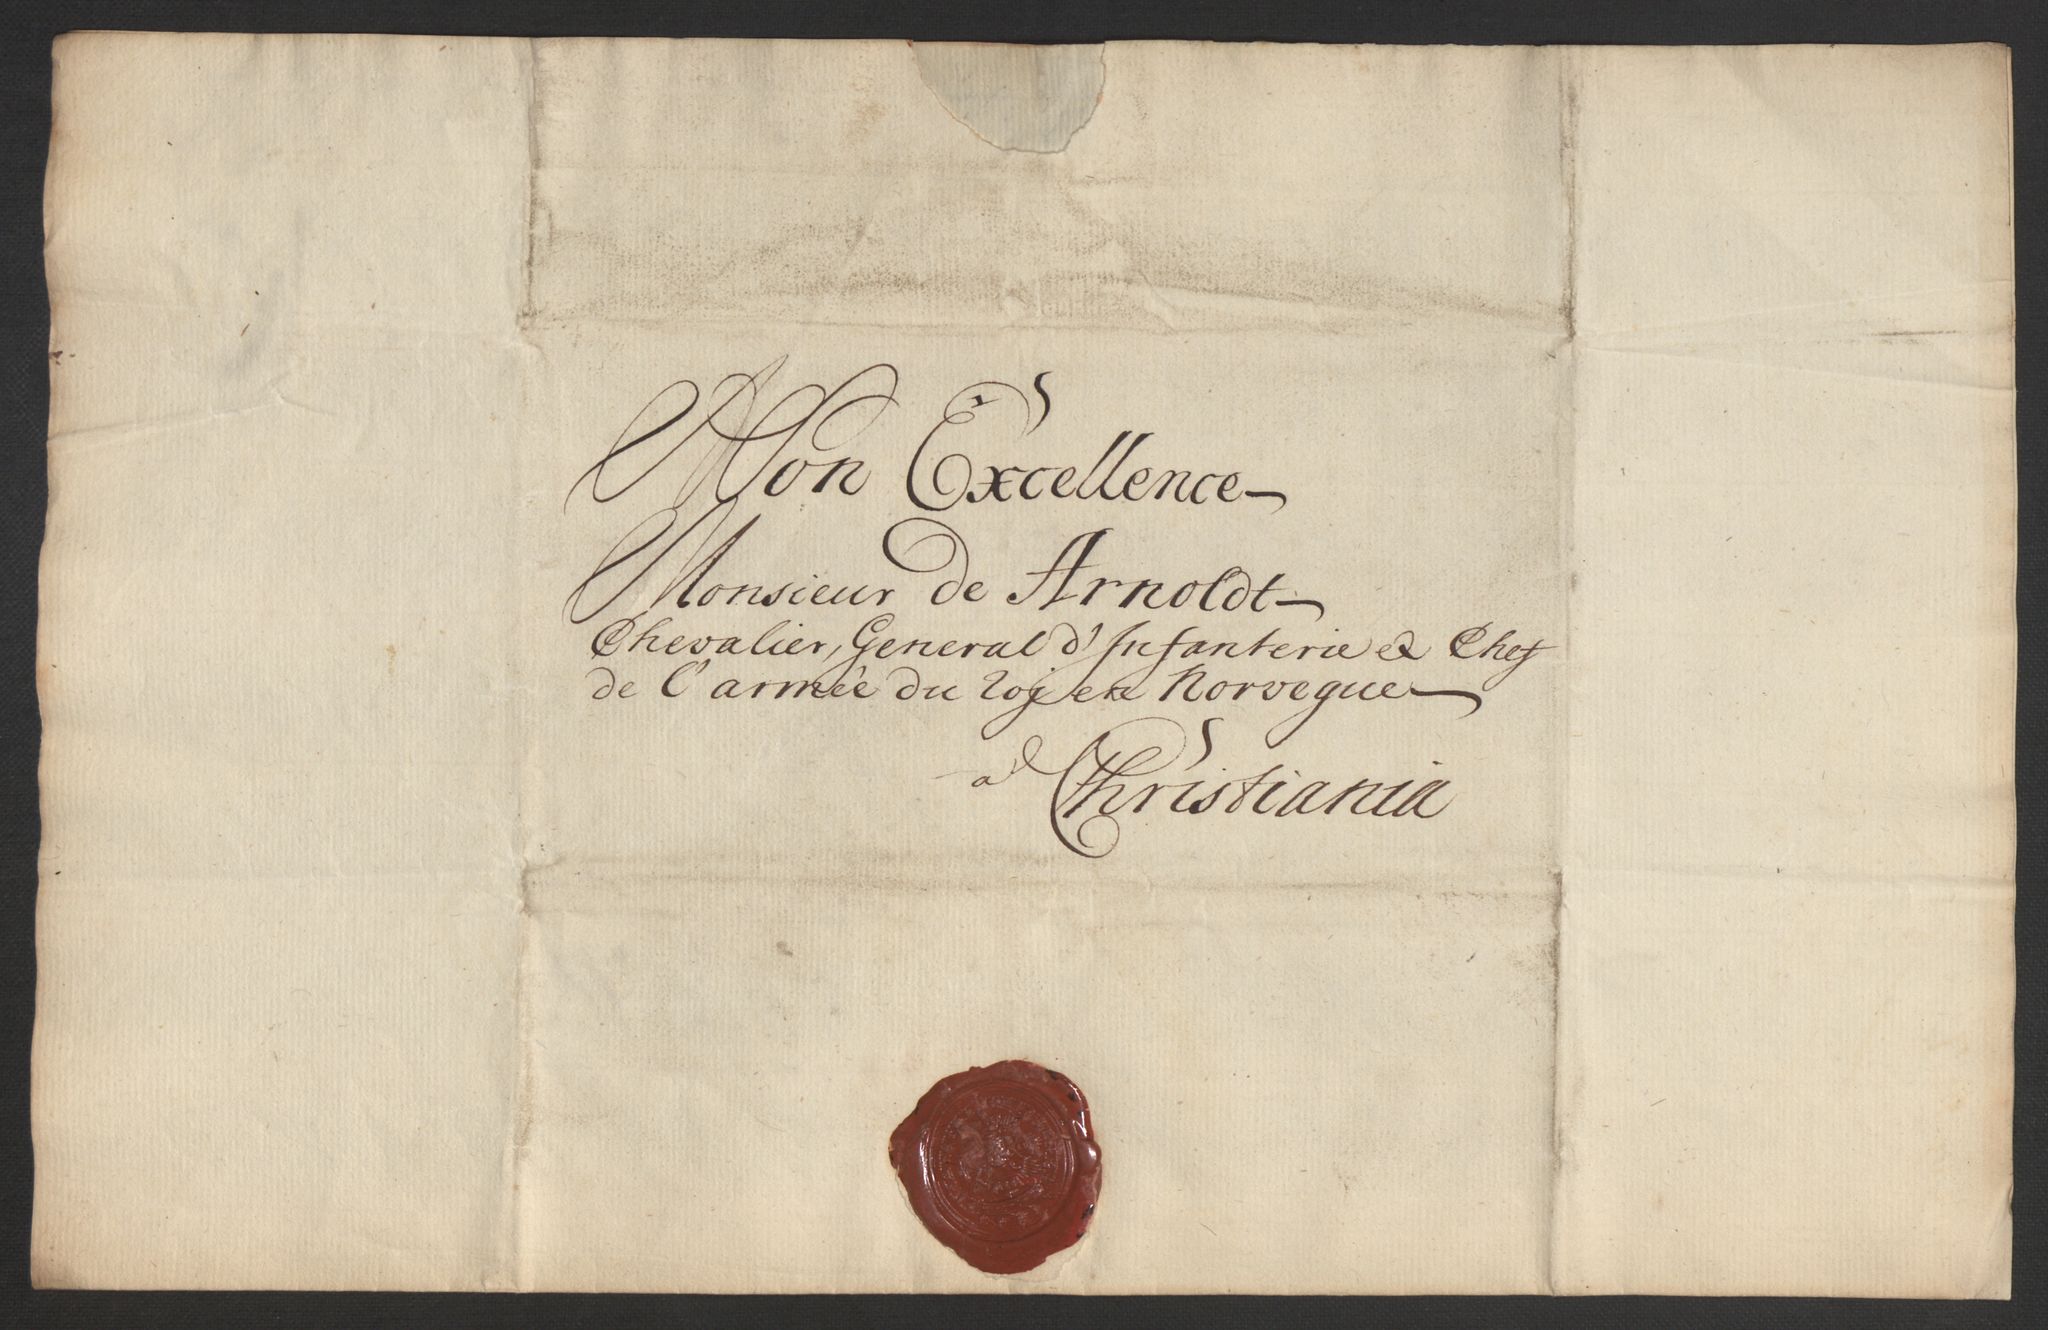 Mon Excellence
Monsieur de Arnoldt
Chevalier, General d'Infanterie et Chef
de l'armée du roy en Norvegue
a Christiania